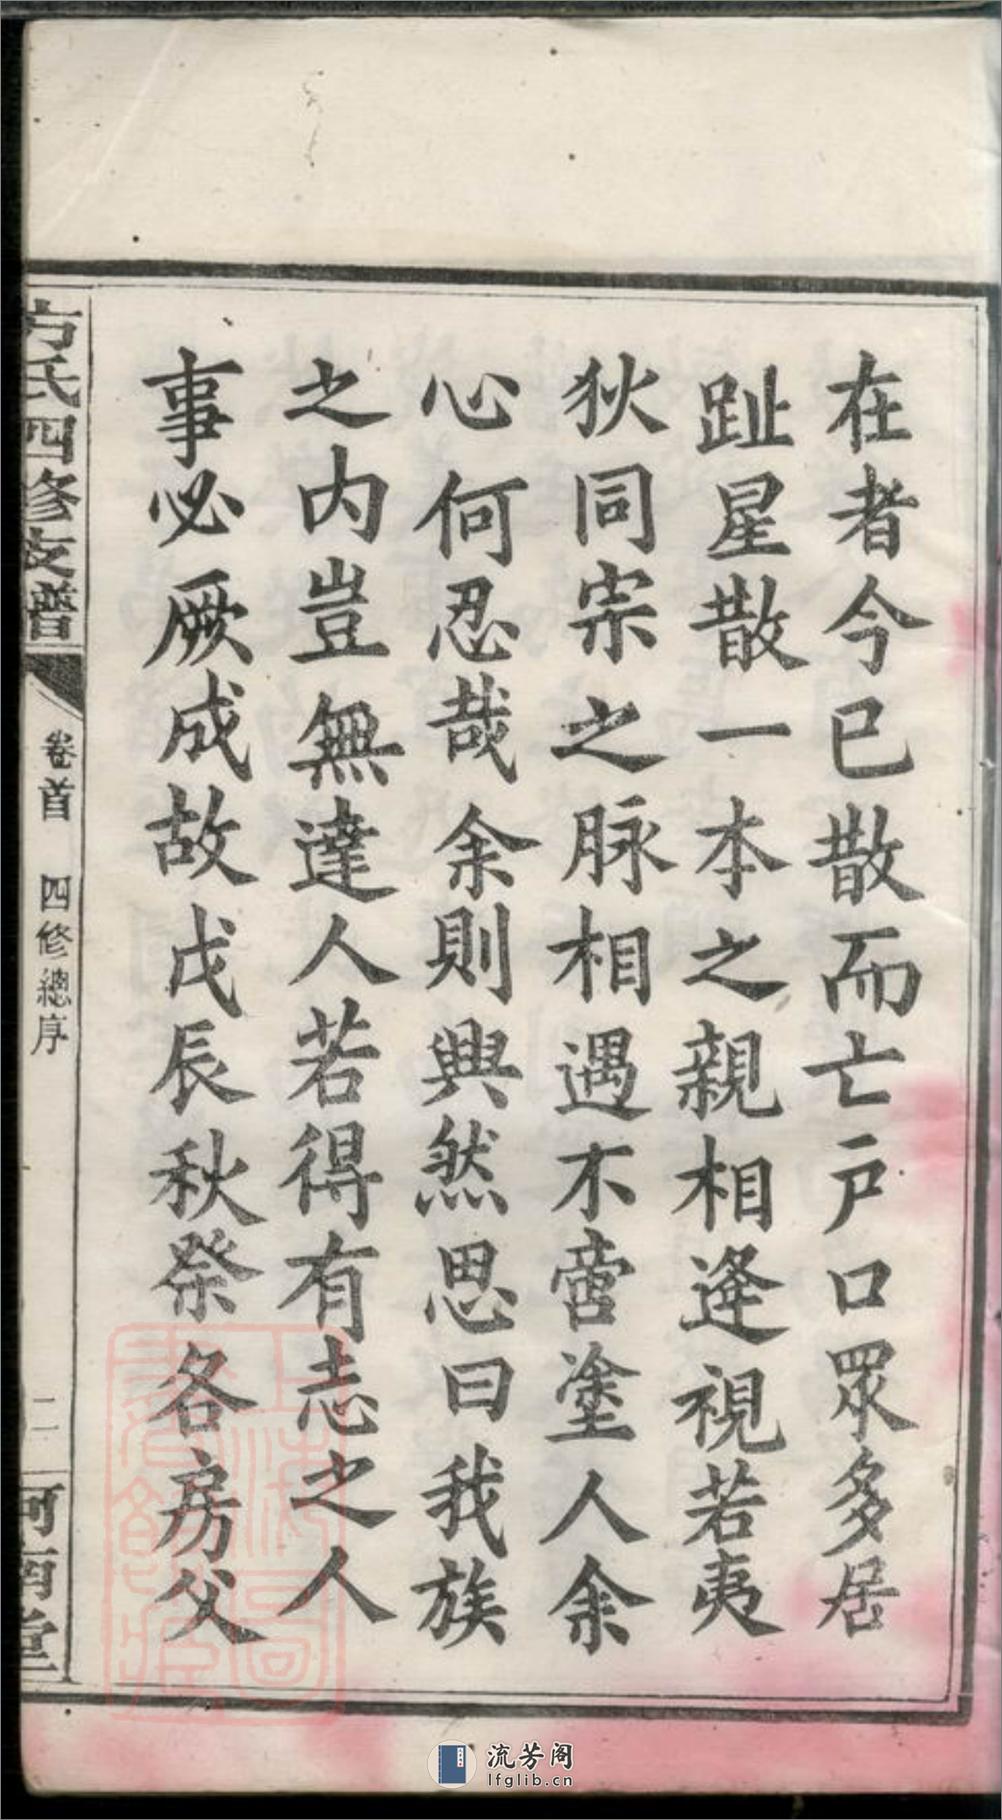 在者今已散而亡戶口眾多居
趾星散一本之親相逢視若夷
狄同宗之脉相遇不啻塗人余
心何忍哉余則興然思曰我族
之内豈無達人若得有志之人
事必厥成故戊辰秋祭各房父
方氏四修支譜
卷首 四修總序
二
河南堂
上海圖書館藏
流芳阁
lfglib.cn